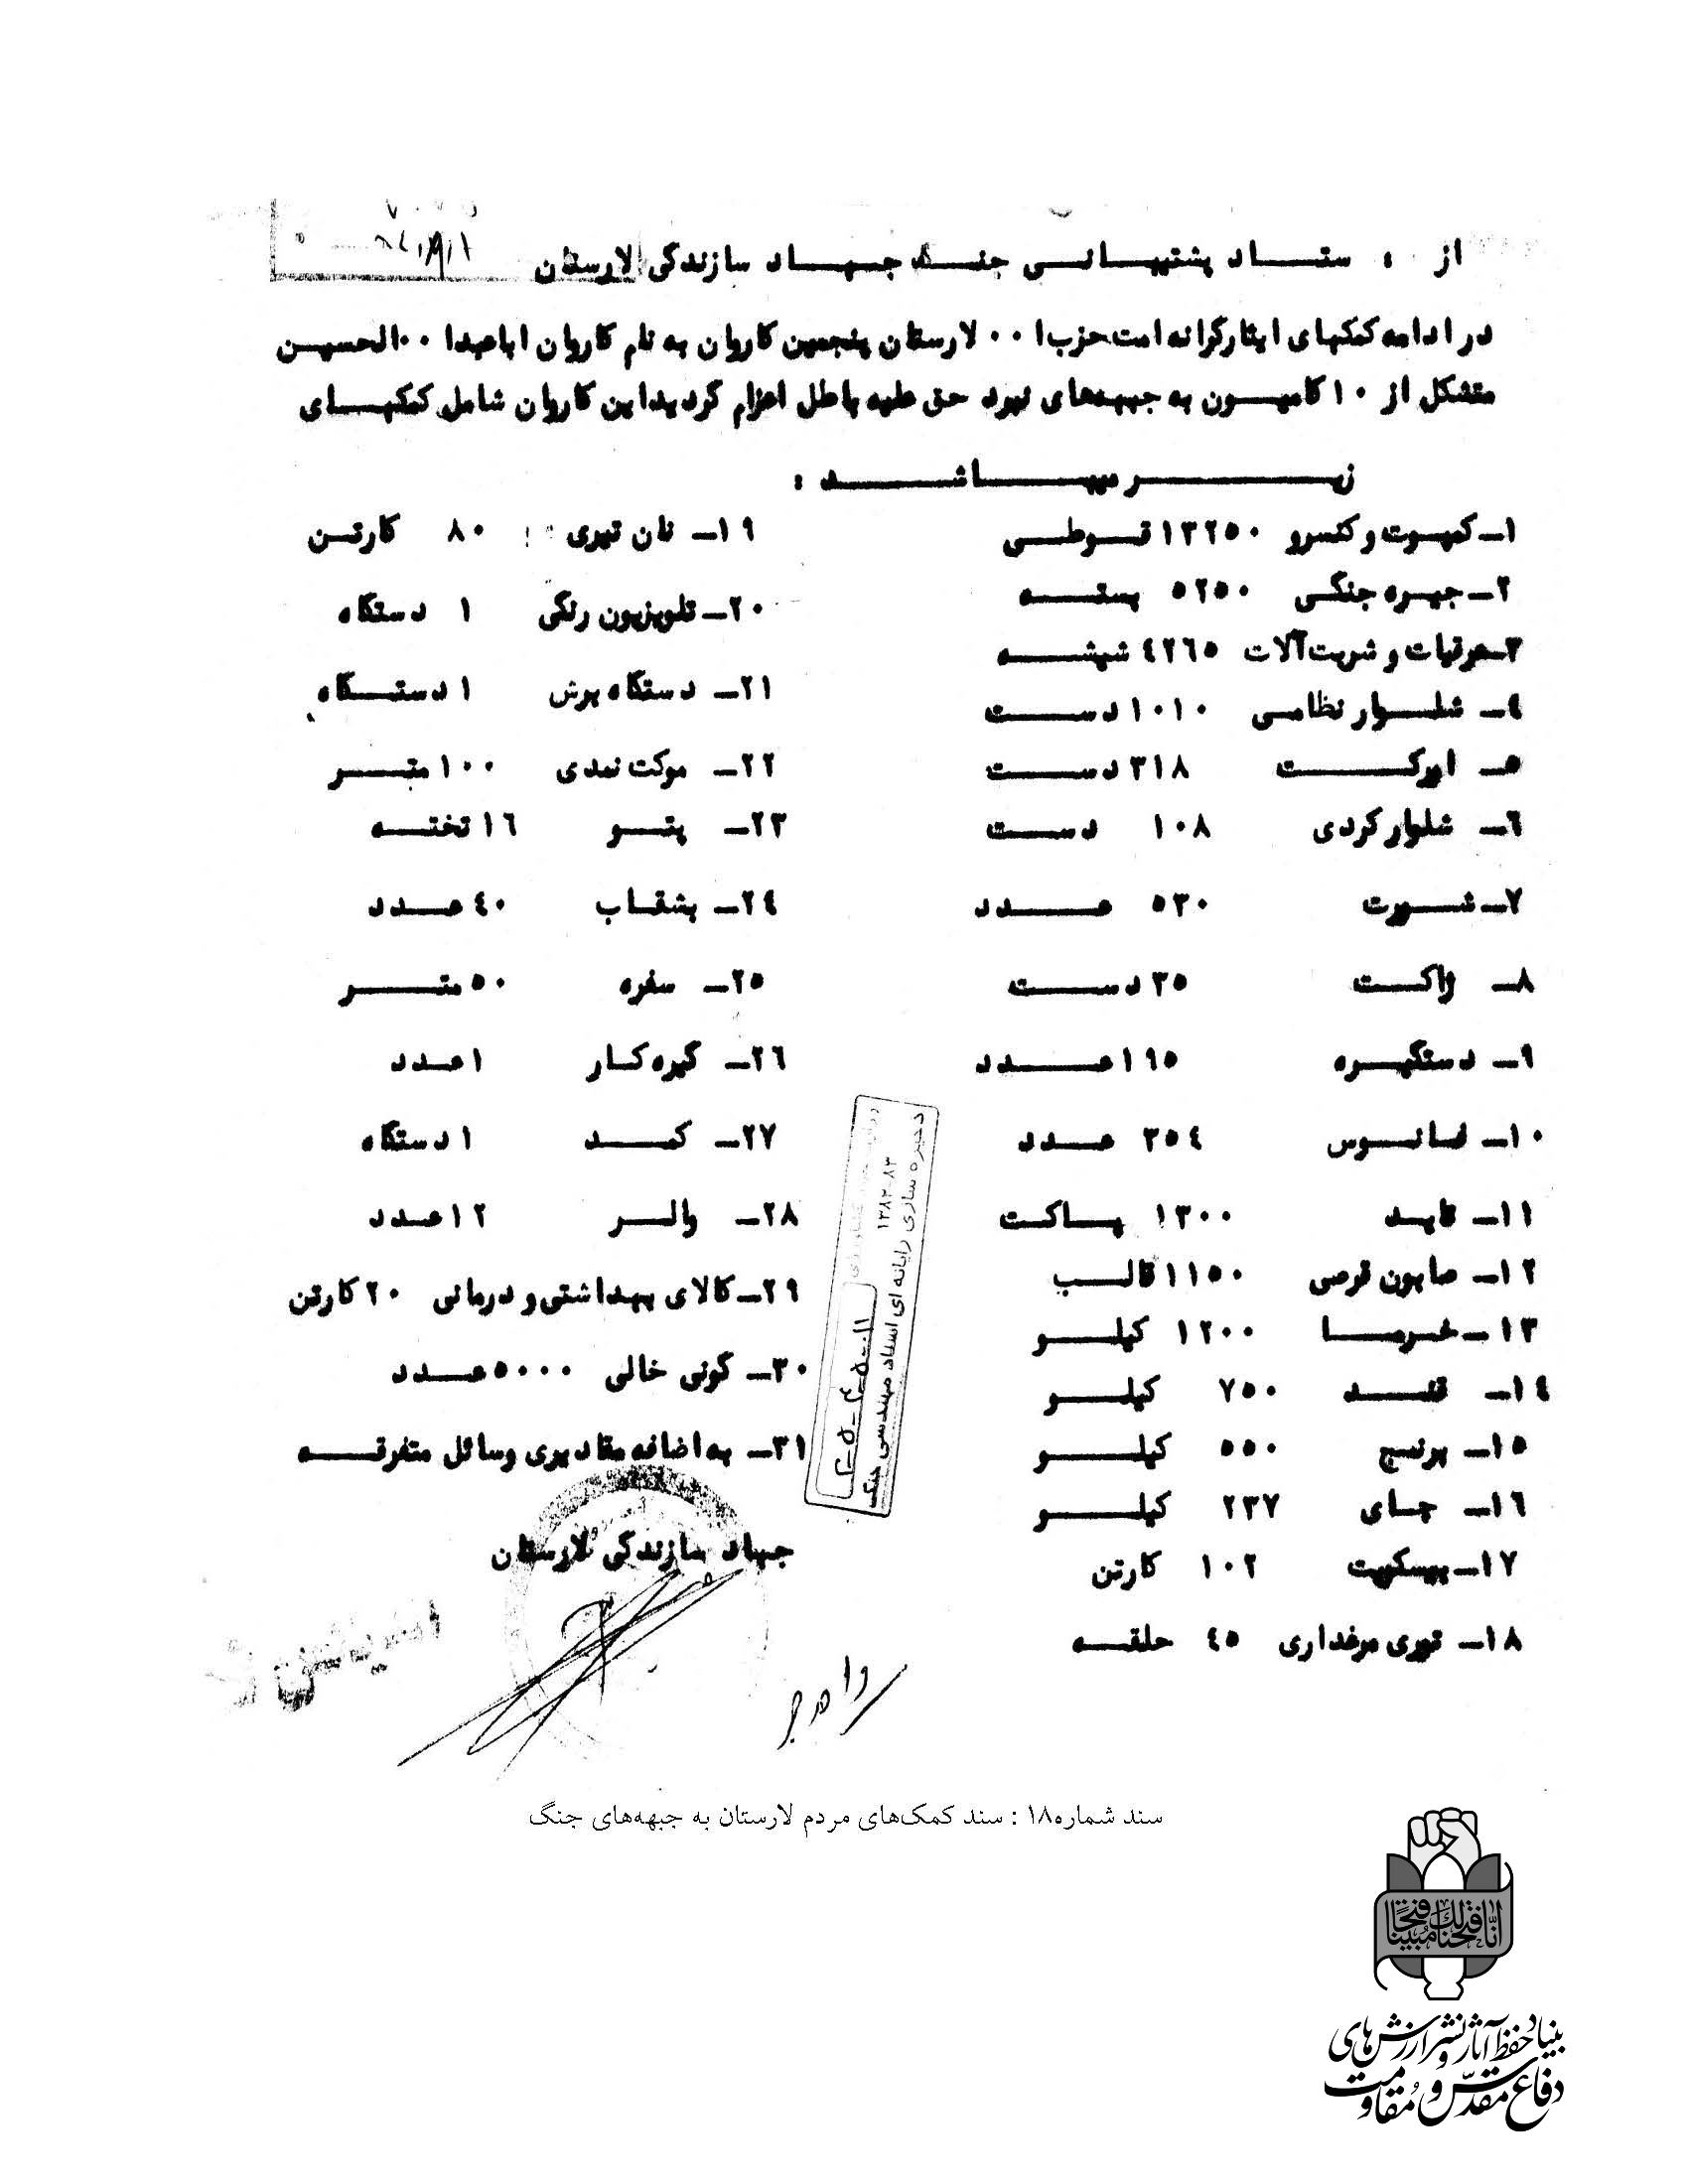 از : ستاد پشتیبانی جنگ جهاد سازندگی لارستان
در ادامه کمکهای ایثارگرانه امت حزب ا ۰۰ لارستان پنجمین کاروان به نام کاروان اباعبدا ۰۰ الحسین
متشکل از ۱۰ کامیون به جبهه‌های نبرد حق علیه باطل اعزام گردید این کاروان شامل کمکهای
زیر میباشد :
۱ـ کمپوت و کنسرو ۱۳۲۵۰ قوطی
۲ـ جیره جنگی ۵۲۵۰ بسته
۳ـ عرقیات و شربت‌آلات ۴۲۶۵ شیشه
۴ـ شلوار نظامی ۱۰۱۰ دست
۵ـ اورکت ۳۱۸ دست
۶ـ شلوار کردی ۱۰۸ دست
۷ـ شورت ۵۳۰ عدد
۸ـ ژاکت ۳۵ دست
۹ـ دستگیره ۱۹۵ عدد
۱۰ـ فانوس ۳۵۴ عدد
۱۱ـ تاید ۱۳۰۰ پاکت
۱۲ـ صابون قرصی ۱۱۵۰ قالب
۱۳ـ خرما ۱۲۰۰ کیلو
۱۴ـ قند ۷۵۰ کیلو
۱۵ـ برنج ۵۵۰ کیلو
۱۶ـ چای ۲۳۷ کیلو
۱۷ـ بیسکویت ۱۰۲ کارتن
۱۸ـ توری مرغداری ۴۵ حلقه
۱۹ـ نان تیری ۸۰ کارتن
۲۰ـ تلویزیون رنگی ۱ دستگاه
۲۱ـ دستگاه برش ۱ دستگاه
۲۲ـ موکت نمدی ۱۰۰ متر
۲۳ـ پتو ۱۶ تخته
۲۴ـ بشقاب ۴۰ عدد
۲۵ـ سفره ۵۰ متر
۲۶ـ گیره کار ۱ عدد
۲۷ـ کمد ۱ دستگاه
۲۸ـ والر ۱۲ عدد
۲۹ـ کالای بهداشتی و درمانی ۲۰ کارتن
۳۰ـ گونی خالی ۵۰۰۰ عدد
۳۱ـ به اضافه مقادیری وسائل متفرقه
جهاد سازندگی لارستان
ذخیره سازی رایانه ای اسناد مهندسی جنگ
۱۳۸۲-۸۳
سند شماره۱۸ : سند کمک‌های مردم لارستان به جبهه‌های جنگ
انّا فتحنا لک فتحا مبینا
بنیاد حفظ آثار و نشر ارزش‌های
دفاع مقدّس و مُقاومت